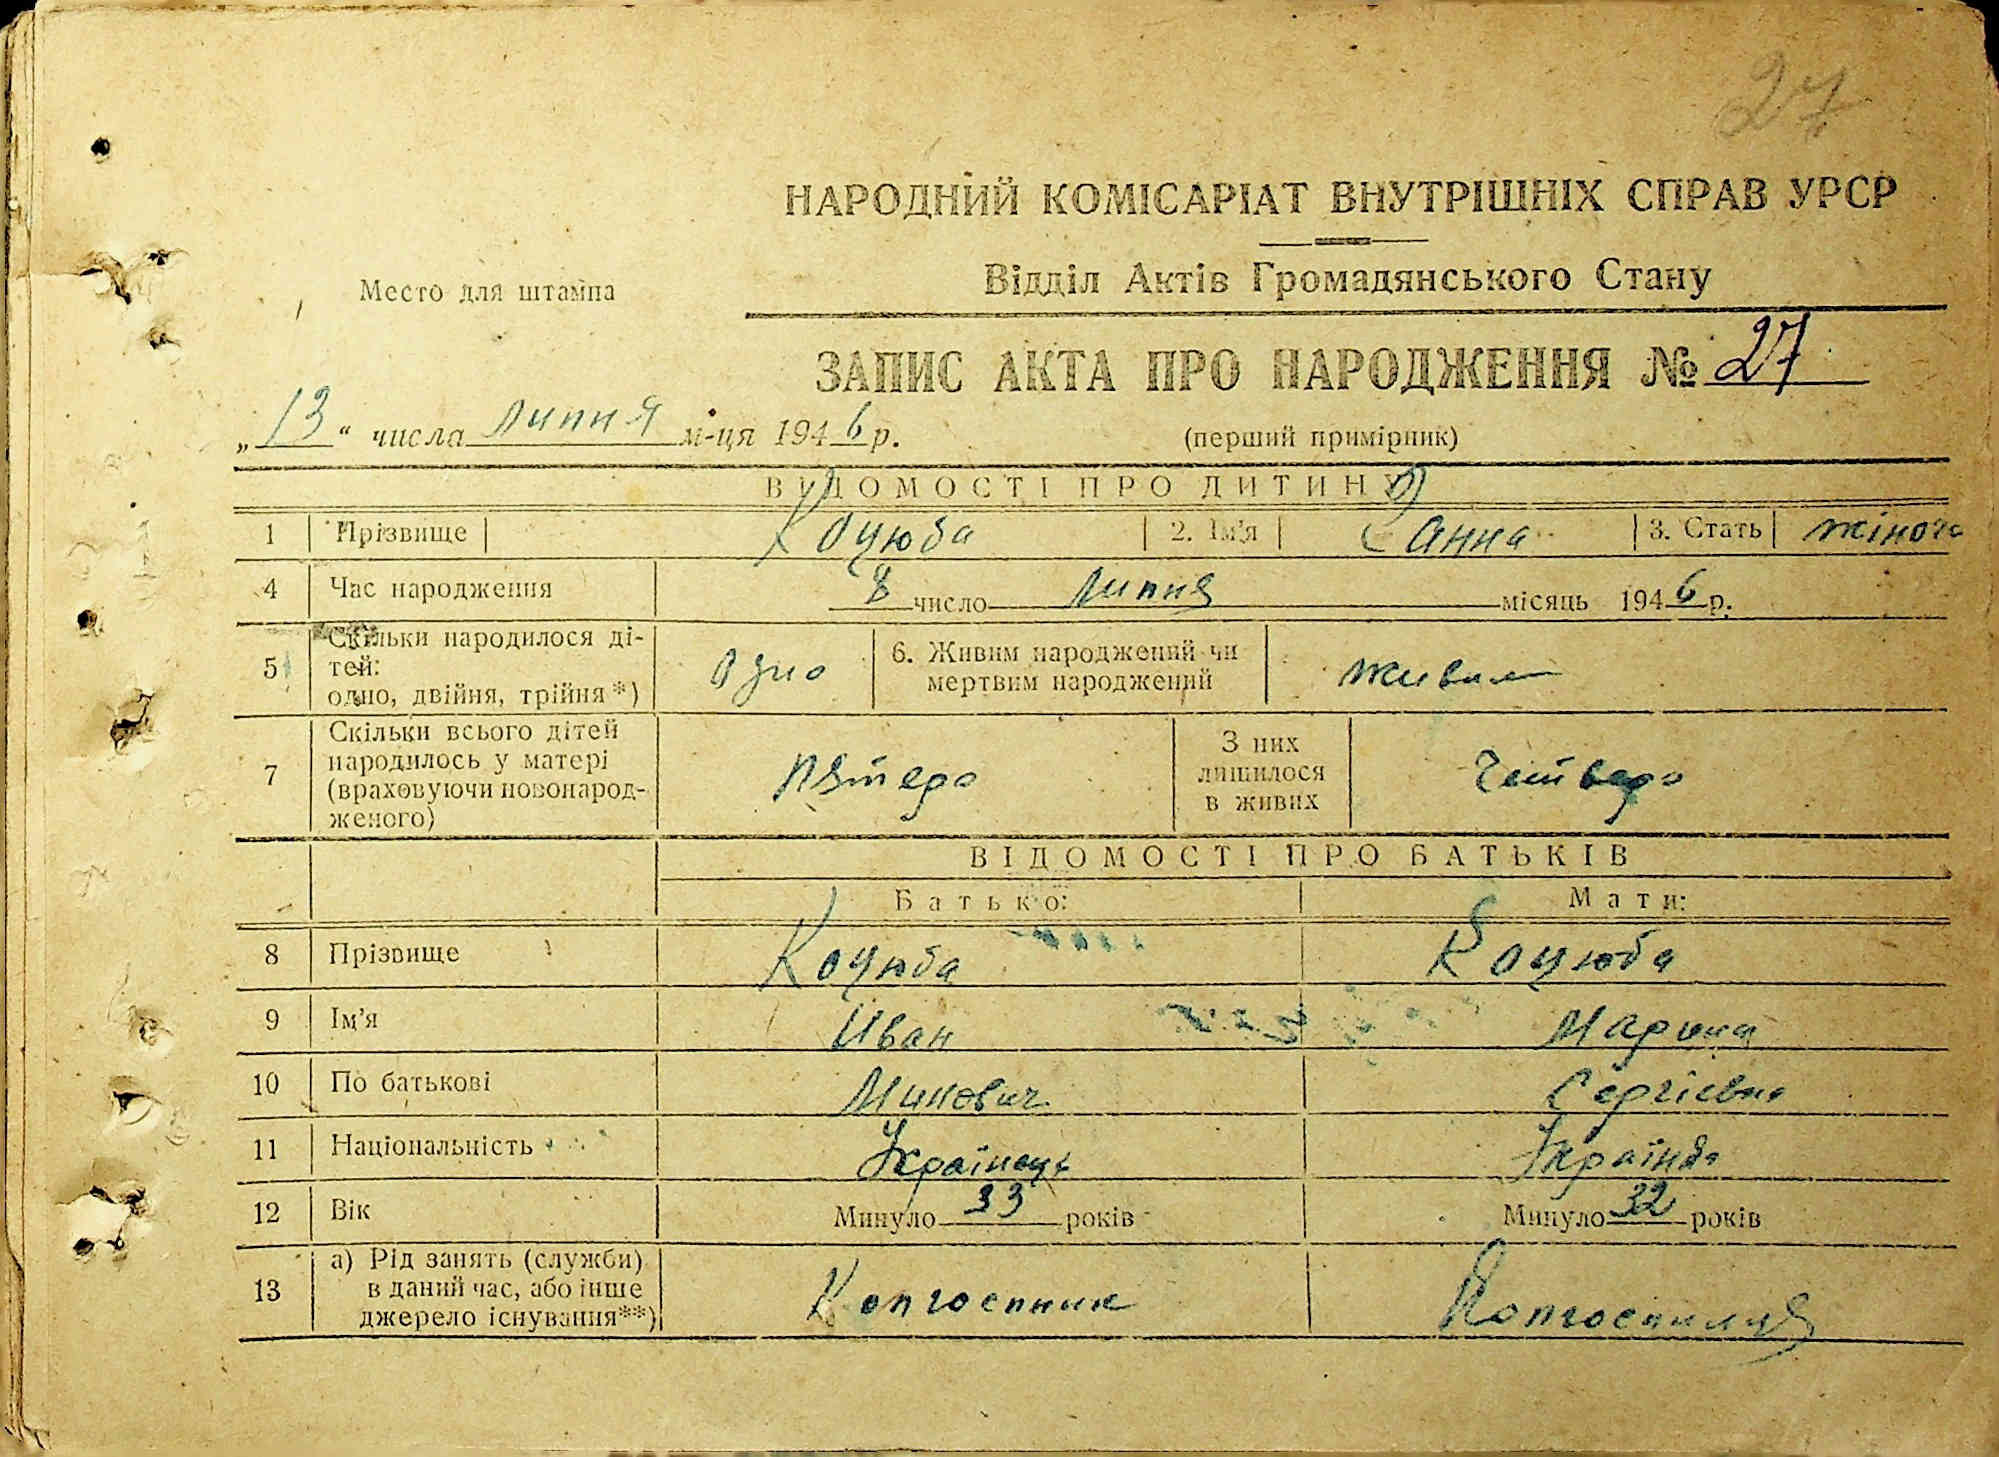 27
НАРОДНИЙ КОМІСАРІАТ ВНУТРІШНІХ СПРАВ УРСР
Відділ Актів Громадянського Стану
Место для штампа
ЗАПИС АКТА ПРО НАРОДЖЕННЯ № 27
„13“ числа липня м-ця 1946 р.
(перший примірник)
ВІДОМОСТІ ПРО ДИТИНУ
1 Прізвище Коцюба 2. Ім'я Ганна 3. Стать жіноча
4 Час народження 8 число липня місяць 1946 р.
5 Скільки народилося ді-
тей:
одно, двійня, трійня*)
одно
6. Живим народжений чи
мертвим народжений
живим
7 Скільки всього дітей
народилось у матері
(враховуючи новонарод-
женого)
пятеро
З них
лишилося
в живих
четверо
ВІДОМОСТІ ПРО БАТЬКІВ
Батько: Мати:
8 Прізвище Коцюба Коцюба
9 Ім'я Иван Марина
10 По батькові Сергієвна
11 Національність Українець Українка
12 Вік Минуло 33 років Минуло 32 років
13 а) Рід занять (служби)
в даний час, або інше
джерело існування**)
Колгоспник Колгоспниця